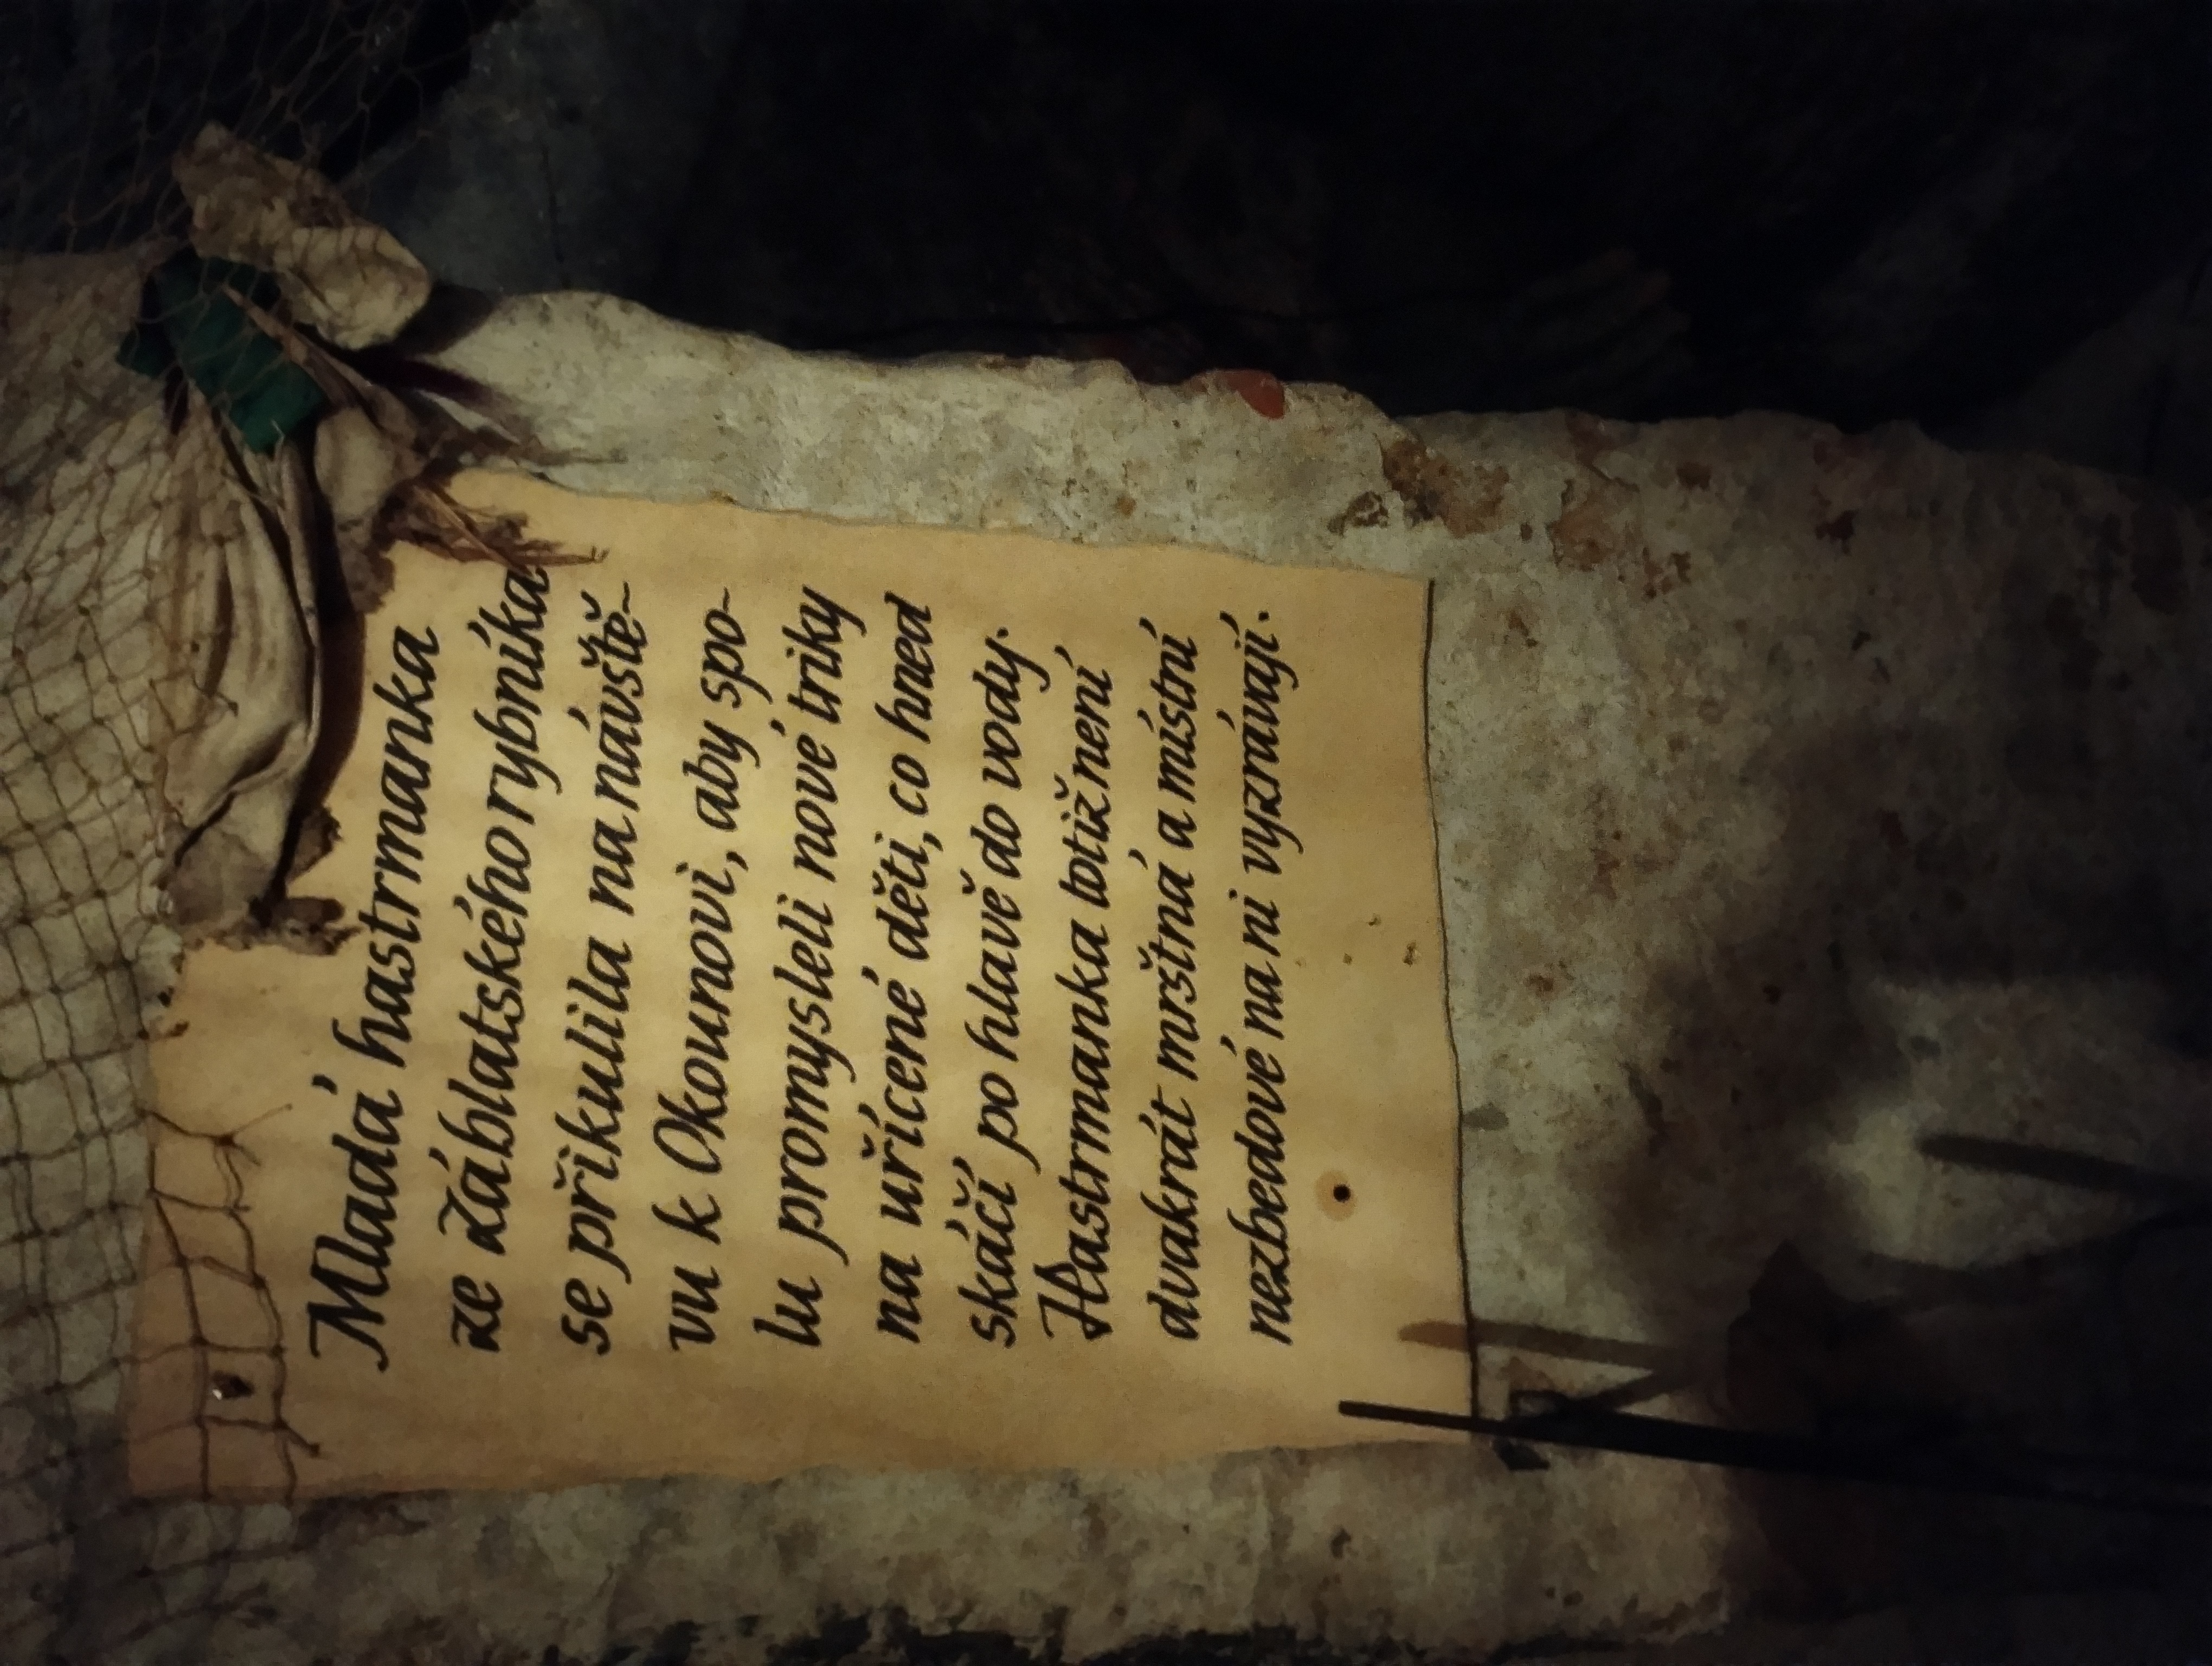 Mladá hastrmanka
ze Záblatského rybníka
se přikulila na návště-
vu k Okounovi, aby spo-
lu promysleli nové triky
na uřícené děti, co hned
skáčí po hlavě do vody.
Hastrmanka totiž není
dvakrát mrštná a místní
nezbedové na ni vyzrávají.